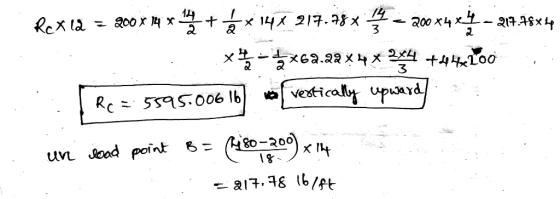 Rc × 12 = 200 × 14 × 14/2 + 1/2 × 14 × 217.78 × 14/3 - 200 × 4 × 4/2 - 217.78 × 4
× 4/2 - 1/2 × 62.22 × 4 × 2×4/3 + 44×200
Rc = 5595.006 lb vertically upward
load point B = (480-200/18) × 14
= 217.78 lb/ft